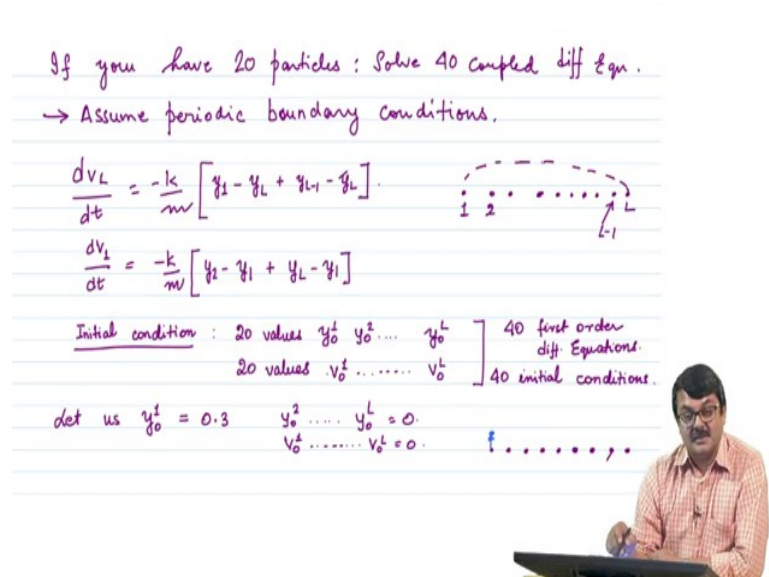 If you have 20 particles : Solve 40 coupled diff Eqn.
→ Assume periodic boundary conditions.
dv_L/dt = -k/m [y_1 - y_L + y_{L-1} - y_L].
1 2 L-1 L
dv_1/dt = -k/m [y_2 - y_1 + y_L - y_1]
Initial condition : 20 values y_0^1 y_0^2 .... y_0^L ] 40 first order diff. Equations.
20 values v_0^1 ........ v_0^L ] 40 initial conditions.
Let us y_0^1 = 0.3 y_0^2 ..... y_0^L = 0.
v_0^1 ........ v_0^L = 0.